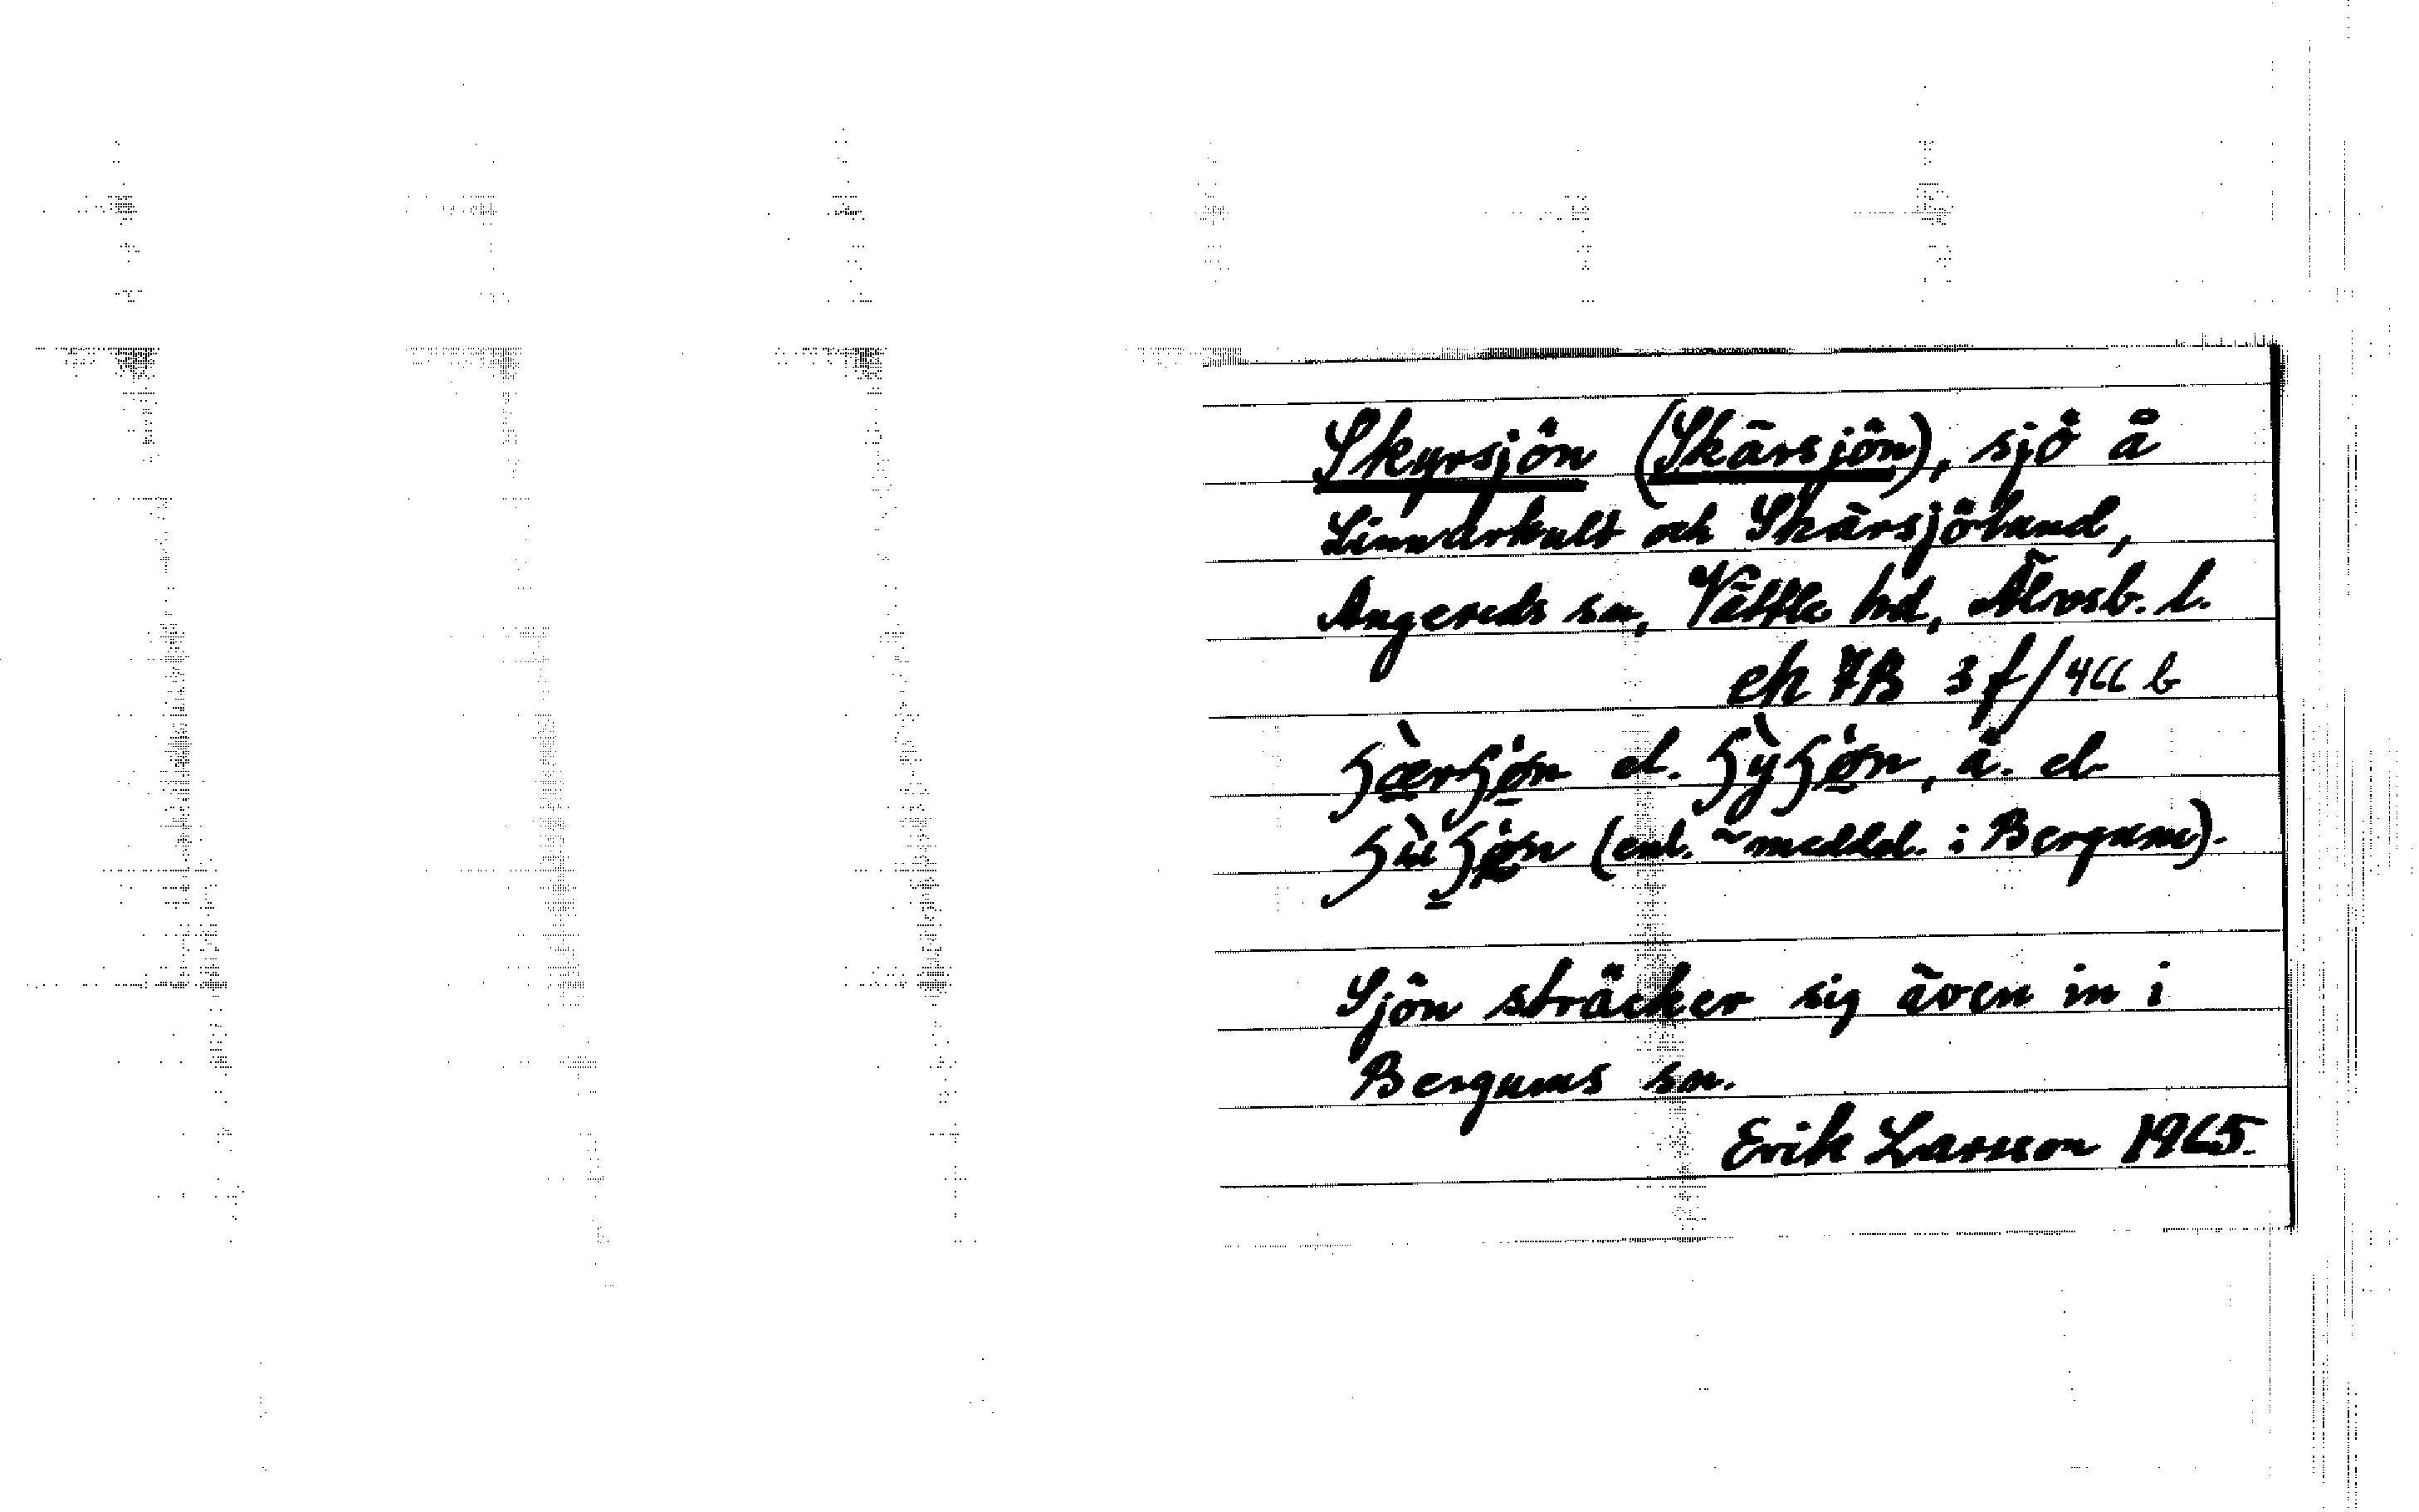 Skyrsjön (Skärsjön), sjö å
Linnarhult och Skärsjölund,
Angereds sn, Vättle hd, Älvsb. l.
ek 7B 3 f/466 b
el. , ä. el.
(enl. ~ meddel. i Bergum).
Sjön sträcker sig även in i
Bergums sn.
Erik Larsson 1965.